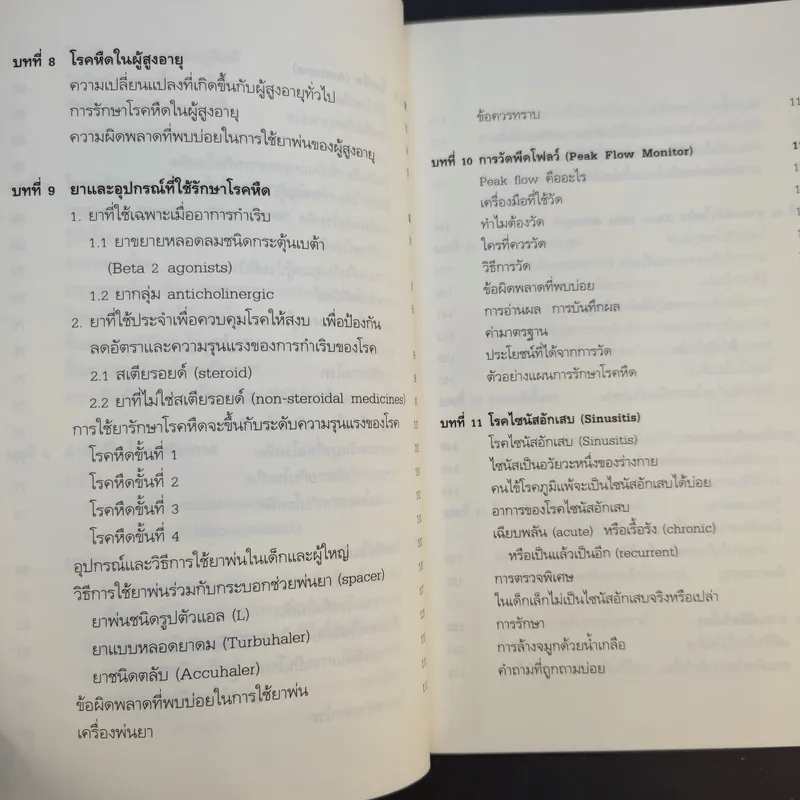 บทที่ 8 โรคหืดในผู้สูงอายุ
ความเปลี่ยนแปลงที่เกิดขึ้นกับผู้สูงอายุทั่วไป
การรักษาโรคหืดในผู้สูงอายุ
ความผิดพลาดที่พบบ่อยในการใช้ยาพ่นของผู้สูงอายุ
บทที่ 9 ยาและอุปกรณ์ที่ใช้รักษาโรคหืด
1. ยาที่ใช้เฉพาะเมื่ออาการกำเริบ
1.1 ยาขยายหลอดลมชนิดกระตุ้นเบต้า
(Beta 2 agonists)
1.2 ยากลุ่ม anticholinergic
2. ยาที่ใช้ประจำเพื่อควบคุมโรคให้สงบ เพื่อป้องกัน
ลดอัตราและความรุนแรงของการกำเริบของโรค
2.1 สเตียรอยด์ (steroid)
2.2 ยาที่ไม่ใช่สเตียรอยด์ (non-steroidal medicines)
การใช้ยารักษาโรคหืดจะขึ้นกับระดับความรุนแรงของโรค
โรคหืดขั้นที่ 1
โรคหืดขั้นที่ 2
โรคหืดขั้นที่ 3
โรคหืดขั้นที่ 4
อุปกรณ์และวิธีการใช้ยาพ่นในเด็กและผู้ใหญ่
วิธีการใช้ยาพ่นร่วมกับกระบอกช่วยพ่นยา (spacer)
ยาพ่นชนิดรูปตัวแอล (L)
ยาแบบหลอดยาดม (Turbuhaler)
ยาชนิดตลับ (Accuhaler)
ข้อผิดพลาดที่พบบ่อยในการใช้ยาพ่น
เครื่องพ่นยา
ข้อควรทราบ
บทที่ 10 การวัดพีคโฟลว์ (Peak Flow Monitor)
Peak flow คืออะไร
เครื่องมือที่ใช้วัด
ทำไมต้องวัด
ใครที่ควรวัด
วิธีการวัด
ข้อผิดพลาดที่พบบ่อย
การอ่านผล การบันทึกผล
ค่ามาตรฐาน
ประโยชน์ที่ได้จากการวัด
ตัวอย่างแผนการรักษาโรคหืด
บทที่ 11 โรคไซนัสอักเสบ (Sinusitis)
โรคไซนัสอักเสบ (Sinusitis)
ไซนัสเป็นอวัยวะหนึ่งของร่างกาย
คนไข้โรคภูมิแพ้จะเป็นไซนัสอักเสบได้บ่อย
อาการของโรคไซนัสอักเสบ
เฉียบพลัน (acute) หรือเรื้อรัง (chronic)
หรือเป็นแล้วเป็นอีก (recurrent)
การตรวจพิเศษ
ในเด็กเล็กไม่เป็นไซนัสอักเสบจริงหรือเปล่า
การรักษา
การล้างจมูกด้วยน้ำเกลือ
คำถามที่ถูกถามบ่อย